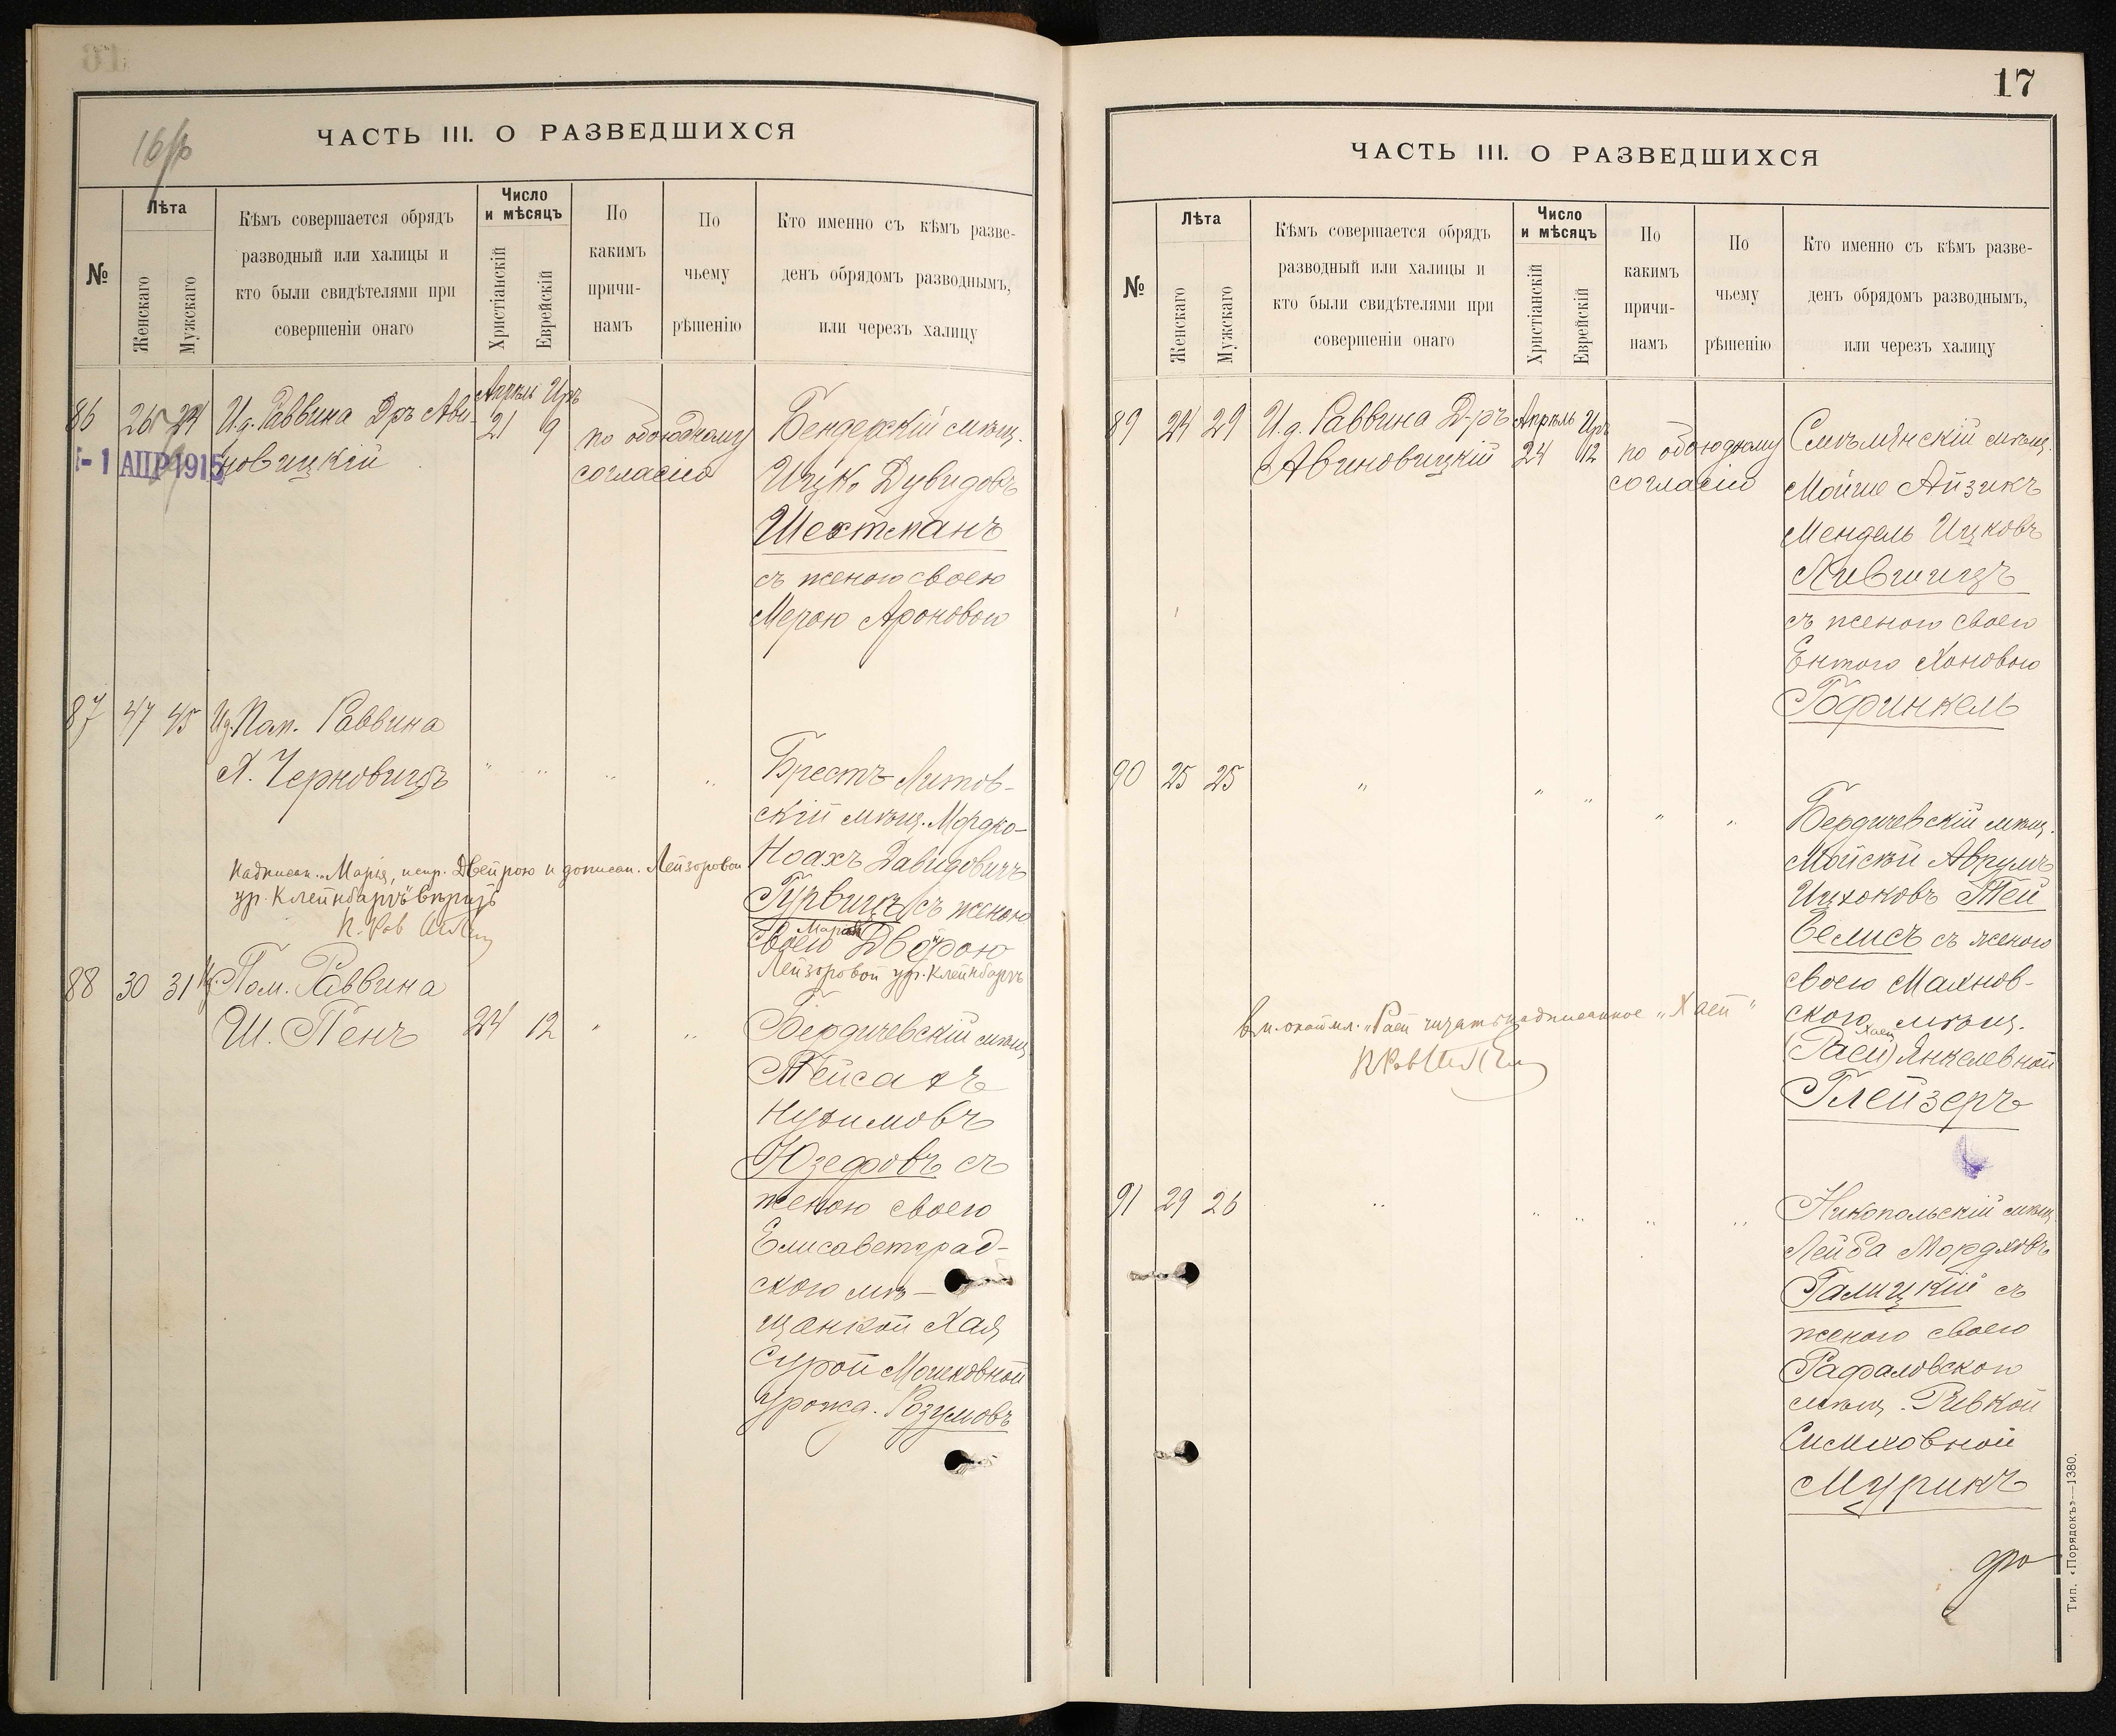 16
ЧАСТЬ III. О РАЗВЕДШИХСЯ
№
Лѣта
Женскаго
Мужскаго
Кѣмъ совершается обрядъ
разводный или халицы и
кто были свидѣтелями при
совершеніи онаго
Число
и мѣсяцъ
Христіанскій
Еврейскій
По
какимъ
причи-
намъ
По
чьему
рѣшенію
Кто именно съ кѣмъ разве-
денъ обрядомъ разводнымъ,
или черезъ халицу
86 26 24 И.д. Раввина Дръ Ави-
новицкій
- 1 АПР 1915
Апрѣль Иръ
21 9
по обоюдному
согласію
Бендерскій мѣщ.
Ицко Дувидовъ
Шехтманъ
съ женою своею
Мерою Ароновою
87 47 45 Пом. Раввина
Х. Черновицъ
" " " "
Брестъ-Литов-
скій мѣщ. Мордко-
Ноахъ Давидовичъ
Гурвицъ съ женою
своею Двейрою
Лейзоровой ур. Клейнбартъ
надписан. "Марія, испр. Двейрою и дописан. Лейзоровой
ур. Клейнбартъ" вѣрить
88 30 31 Пом. Раввина
Ш. Пенъ
24 12 " "
Бердичевскій мѣщ.
Пейсахъ
Нухимовъ
Юзефовъ съ
женою своею
Елисаветград-
скою мѣ-
щанкой Хая
Сурой Мошковной
урожд. Розумовъ
17
ЧАСТЬ III. О РАЗВЕДШИХСЯ
№
Лѣта
Женскаго
Мужскаго
Кѣмъ совершается обрядъ
разводный или халицы и
кто были свидѣтелями при
совершеніи онаго
Число
и мѣсяцъ
Христіанскій
Еврейскій
По
какимъ
причи-
намъ
По
чьему
рѣшенію
Кто именно съ кѣмъ разве-
денъ обрядомъ разводнымъ,
или черезъ халицу
89 24 29 И.д. Раввина Д-ръ
Авиновицкій
Апрѣль Иръ
24 12
по обоюдному
согласію
Смѣлянскій мѣщ.
Мойше Айзикъ
Мендель Ицковъ
Лившицъ
съ женою своею
Ентою Хоновою
Гофинкель
90 25 25 " " " " "
Бердичевскій мѣщ.
Мойсей Аврумъ
Ицхоковъ Тей
Велисъ съ женою
своею Махнов-
скою мѣщ.
Хаей
(Раей) Янкелевной
Глейзеръ
"Раей" читать надписанное "Хаей"
91 29 26 " " " " "
Никопольскій мѣщ.
Лейба Мордковъ
Галицкій съ
женою своею
Рафаловскою
мѣщ. Ривкой
Симховной
Мурикъ
Тип. «Порядокъ»—1380.